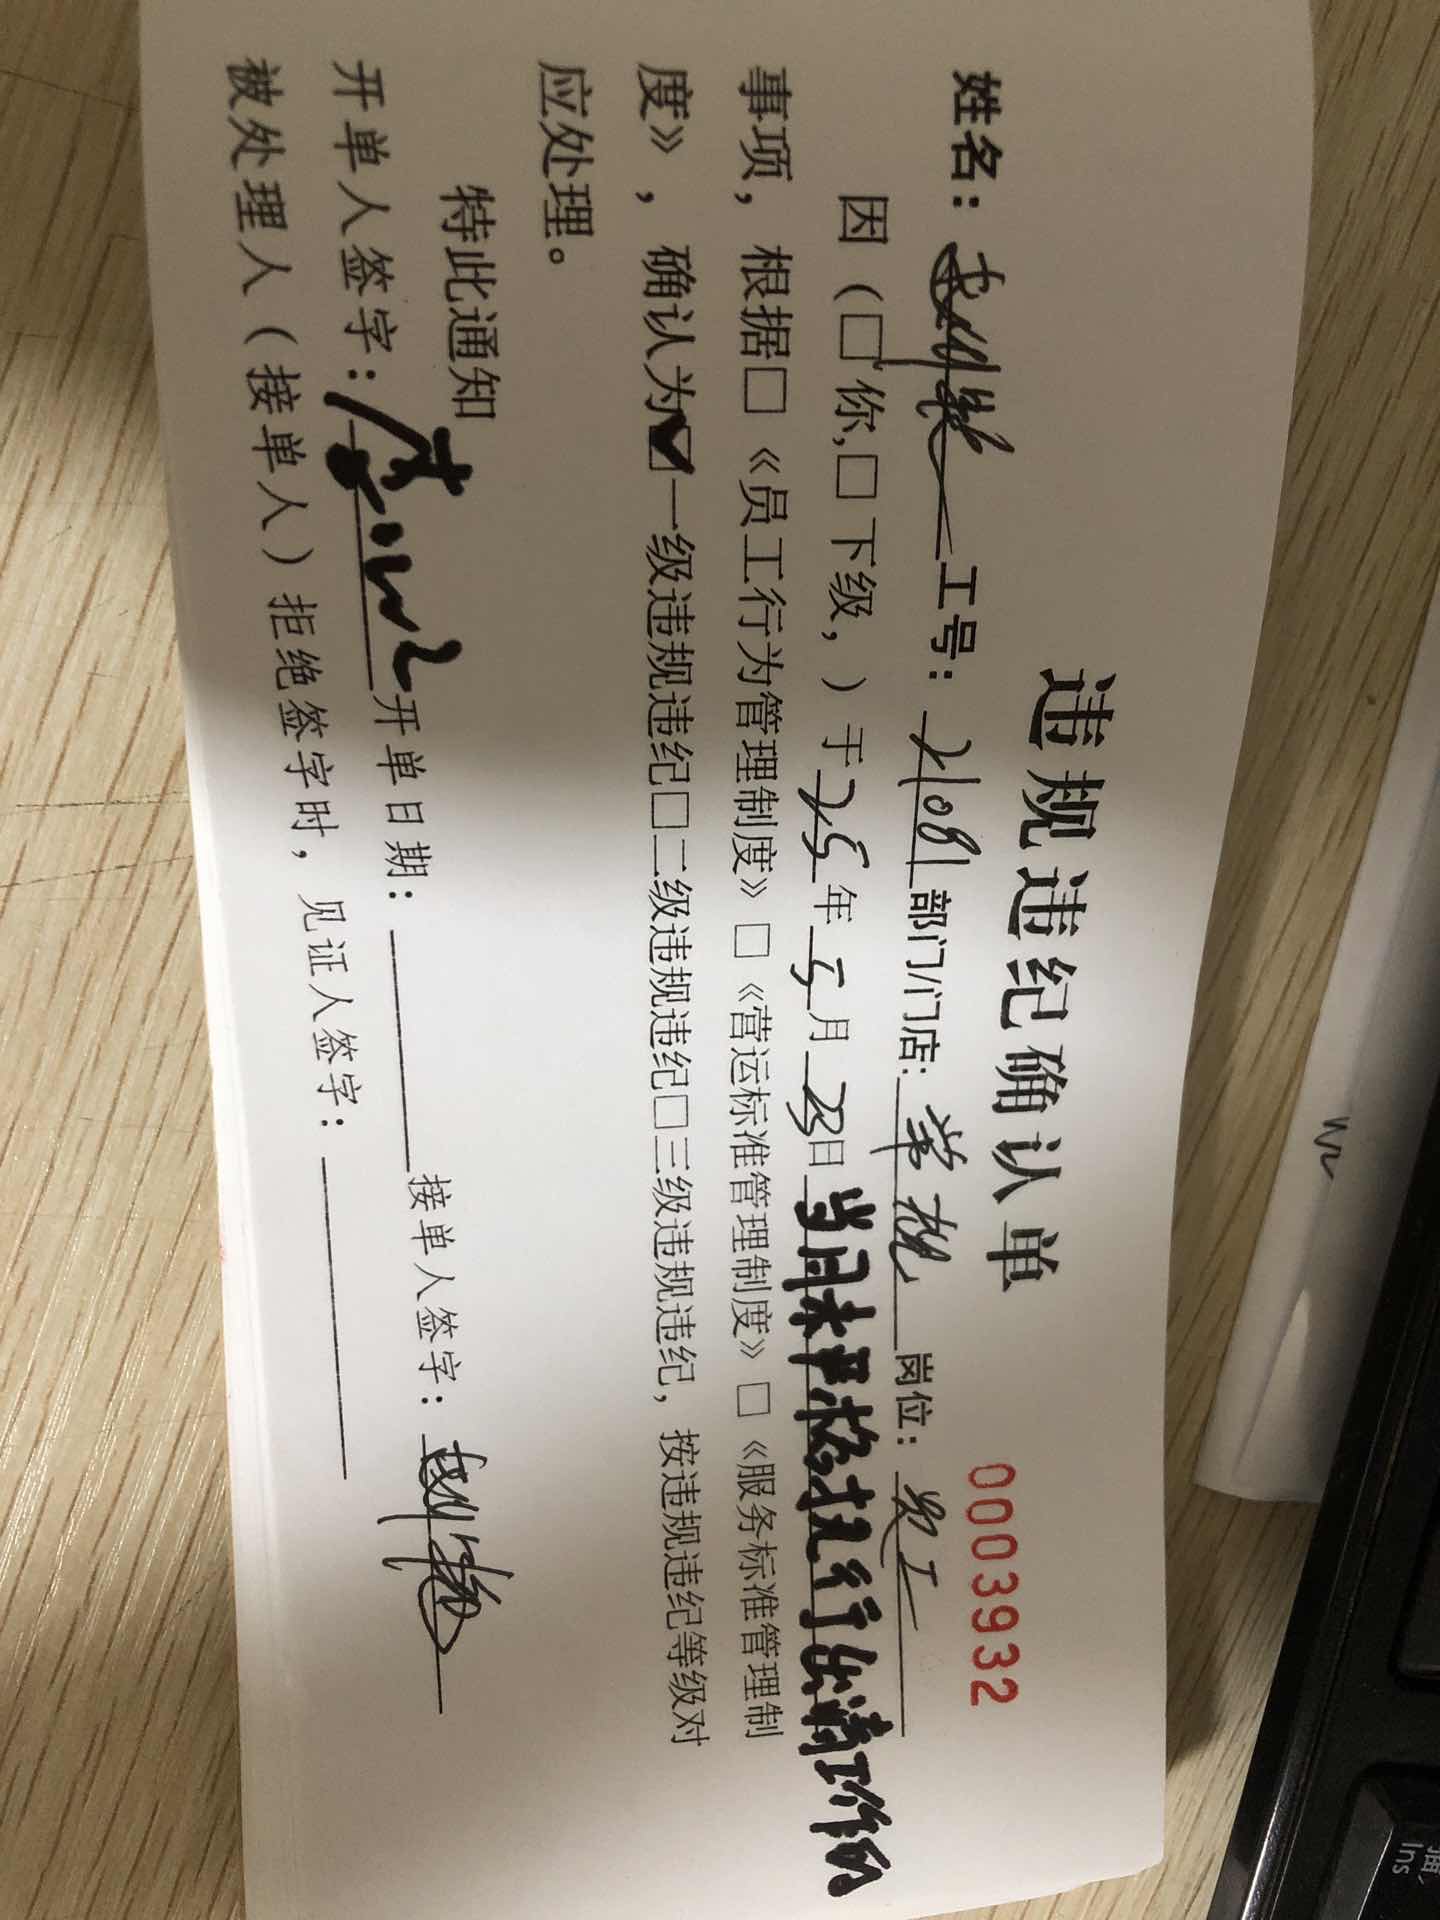 违规违纪确认单
0003932
姓名： 工号：21081部门/门店： 岗位：员工
因（□你,□下级，）于25年5月23日当月未严格执行 工作的
事项，根据□《员工行为管理制度》□《营运标准管理制度》□《服务标准管理制
度》，确认为☑一级违规违纪□二级违规违纪□三级违规违纪，按违规违纪等级对
应处理。
特此通知
开单人签字： 开单日期： 接单人签字：
被处理人（接单人）拒绝签字时，见证人签字：
Ins